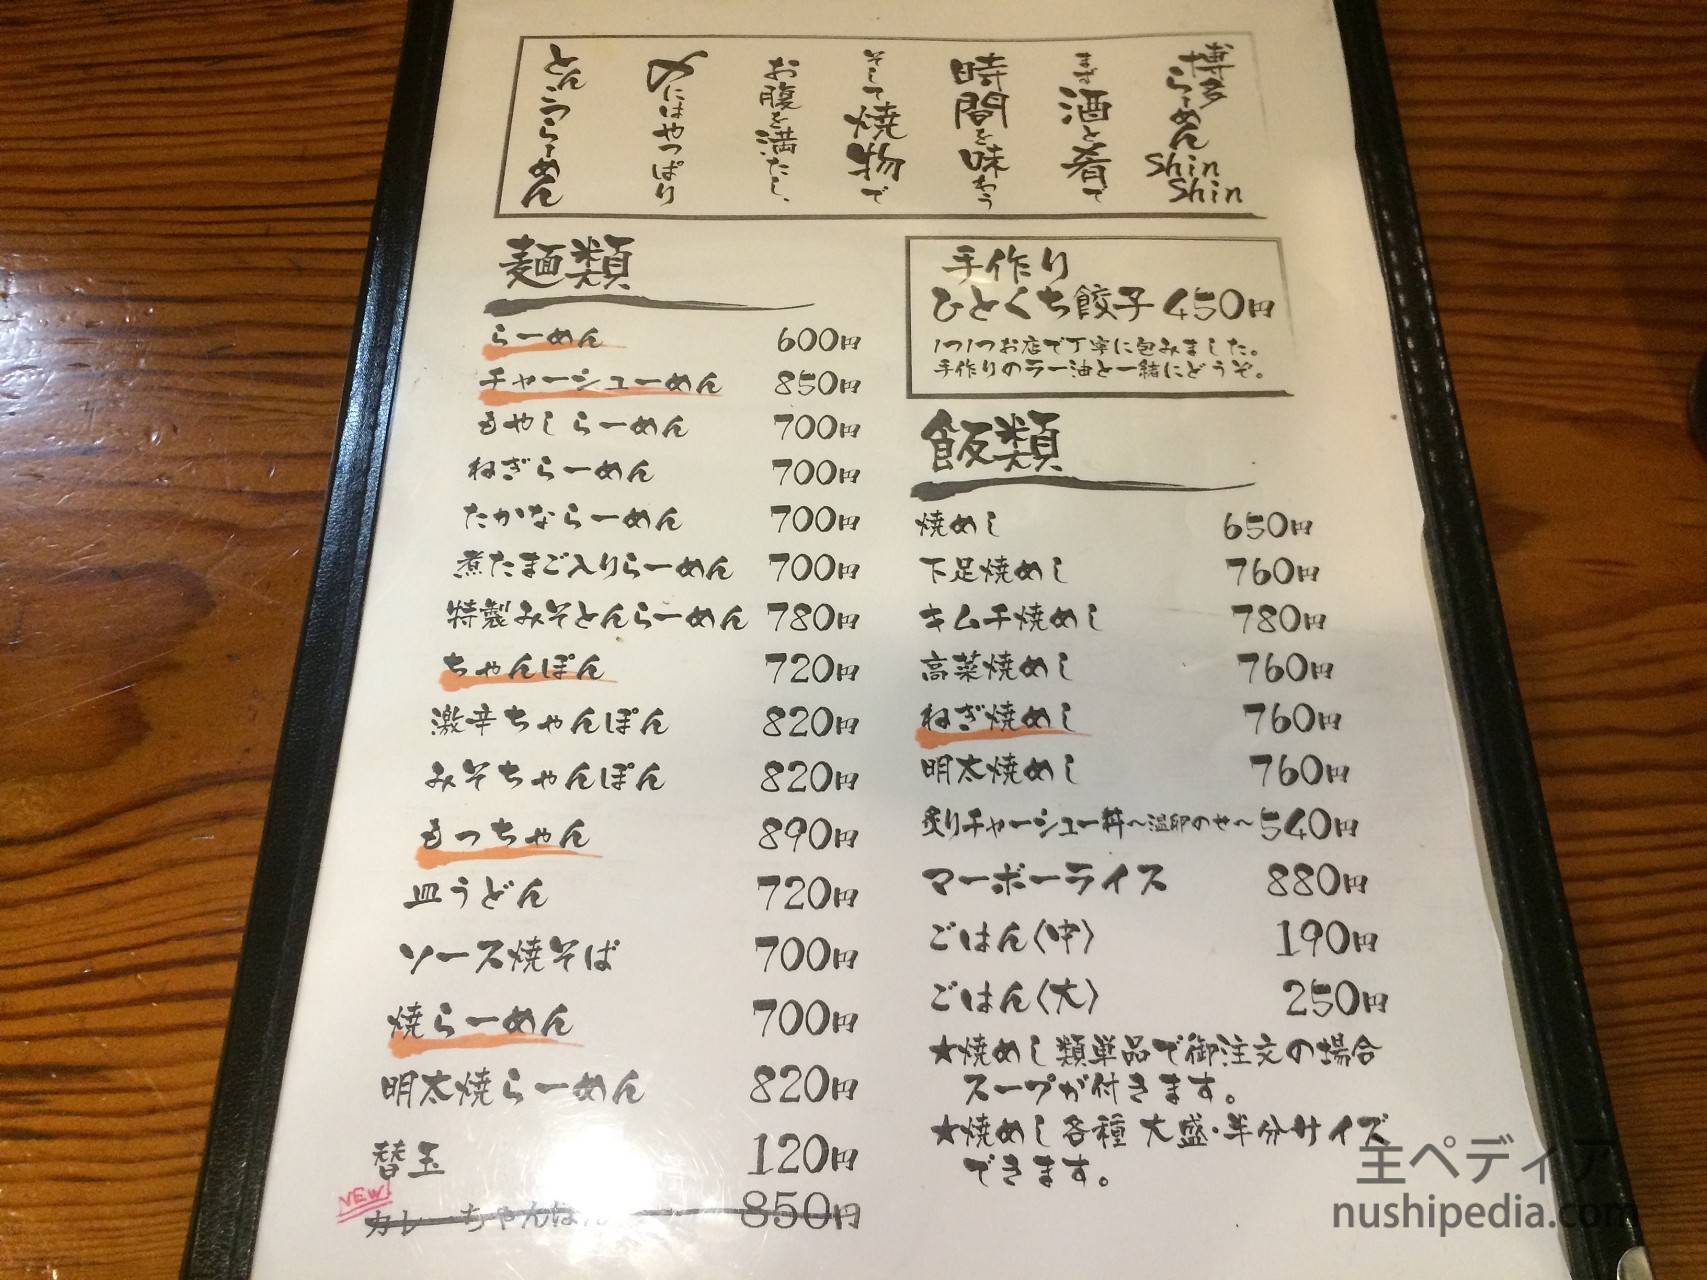 博多らーめん Shin Shin
まず酒と肴で
時間を味わう
そして焼物で
お腹を満たし、
〆にはやっぱり
とんこつらーめん
麺類
らーめん 600円
チャーシューめん 850円
もやしらーめん 700円
ねぎらーめん 700円
たかならーめん 700円
煮たまご入りらーめん 700円
特製みそとんらーめん 780円
ちゃんぽん 720円
激辛ちゃんぽん 820円
みそちゃんぽん 820円
もつちゃん 890円
皿うどん 720円
ソース焼そば 700円
焼らーめん 700円
明太焼らーめん 820円
替玉 120円
NEW!
カレーちゃんぽん 850円
手作り
ひとくち餃子 450円
1つ1つお店で丁寧に包みました。
手作りのラー油と一緒にどうぞ。
飯類
焼めし 650円
下足焼めし 760円
キムチ焼めし 780円
高菜焼めし 760円
ねぎ焼めし 760円
明太焼めし 760円
炙りチャーシュー丼〜温卵のせ〜 540円
マーボーライス 880円
ごはん〈中〉 190円
ごはん〈大〉 250円
★焼めし類単品で御注文の場合
スープが付きます。
★焼めし各種 大盛・半分サイズ
できます。
主ペディア
nushipedia.com